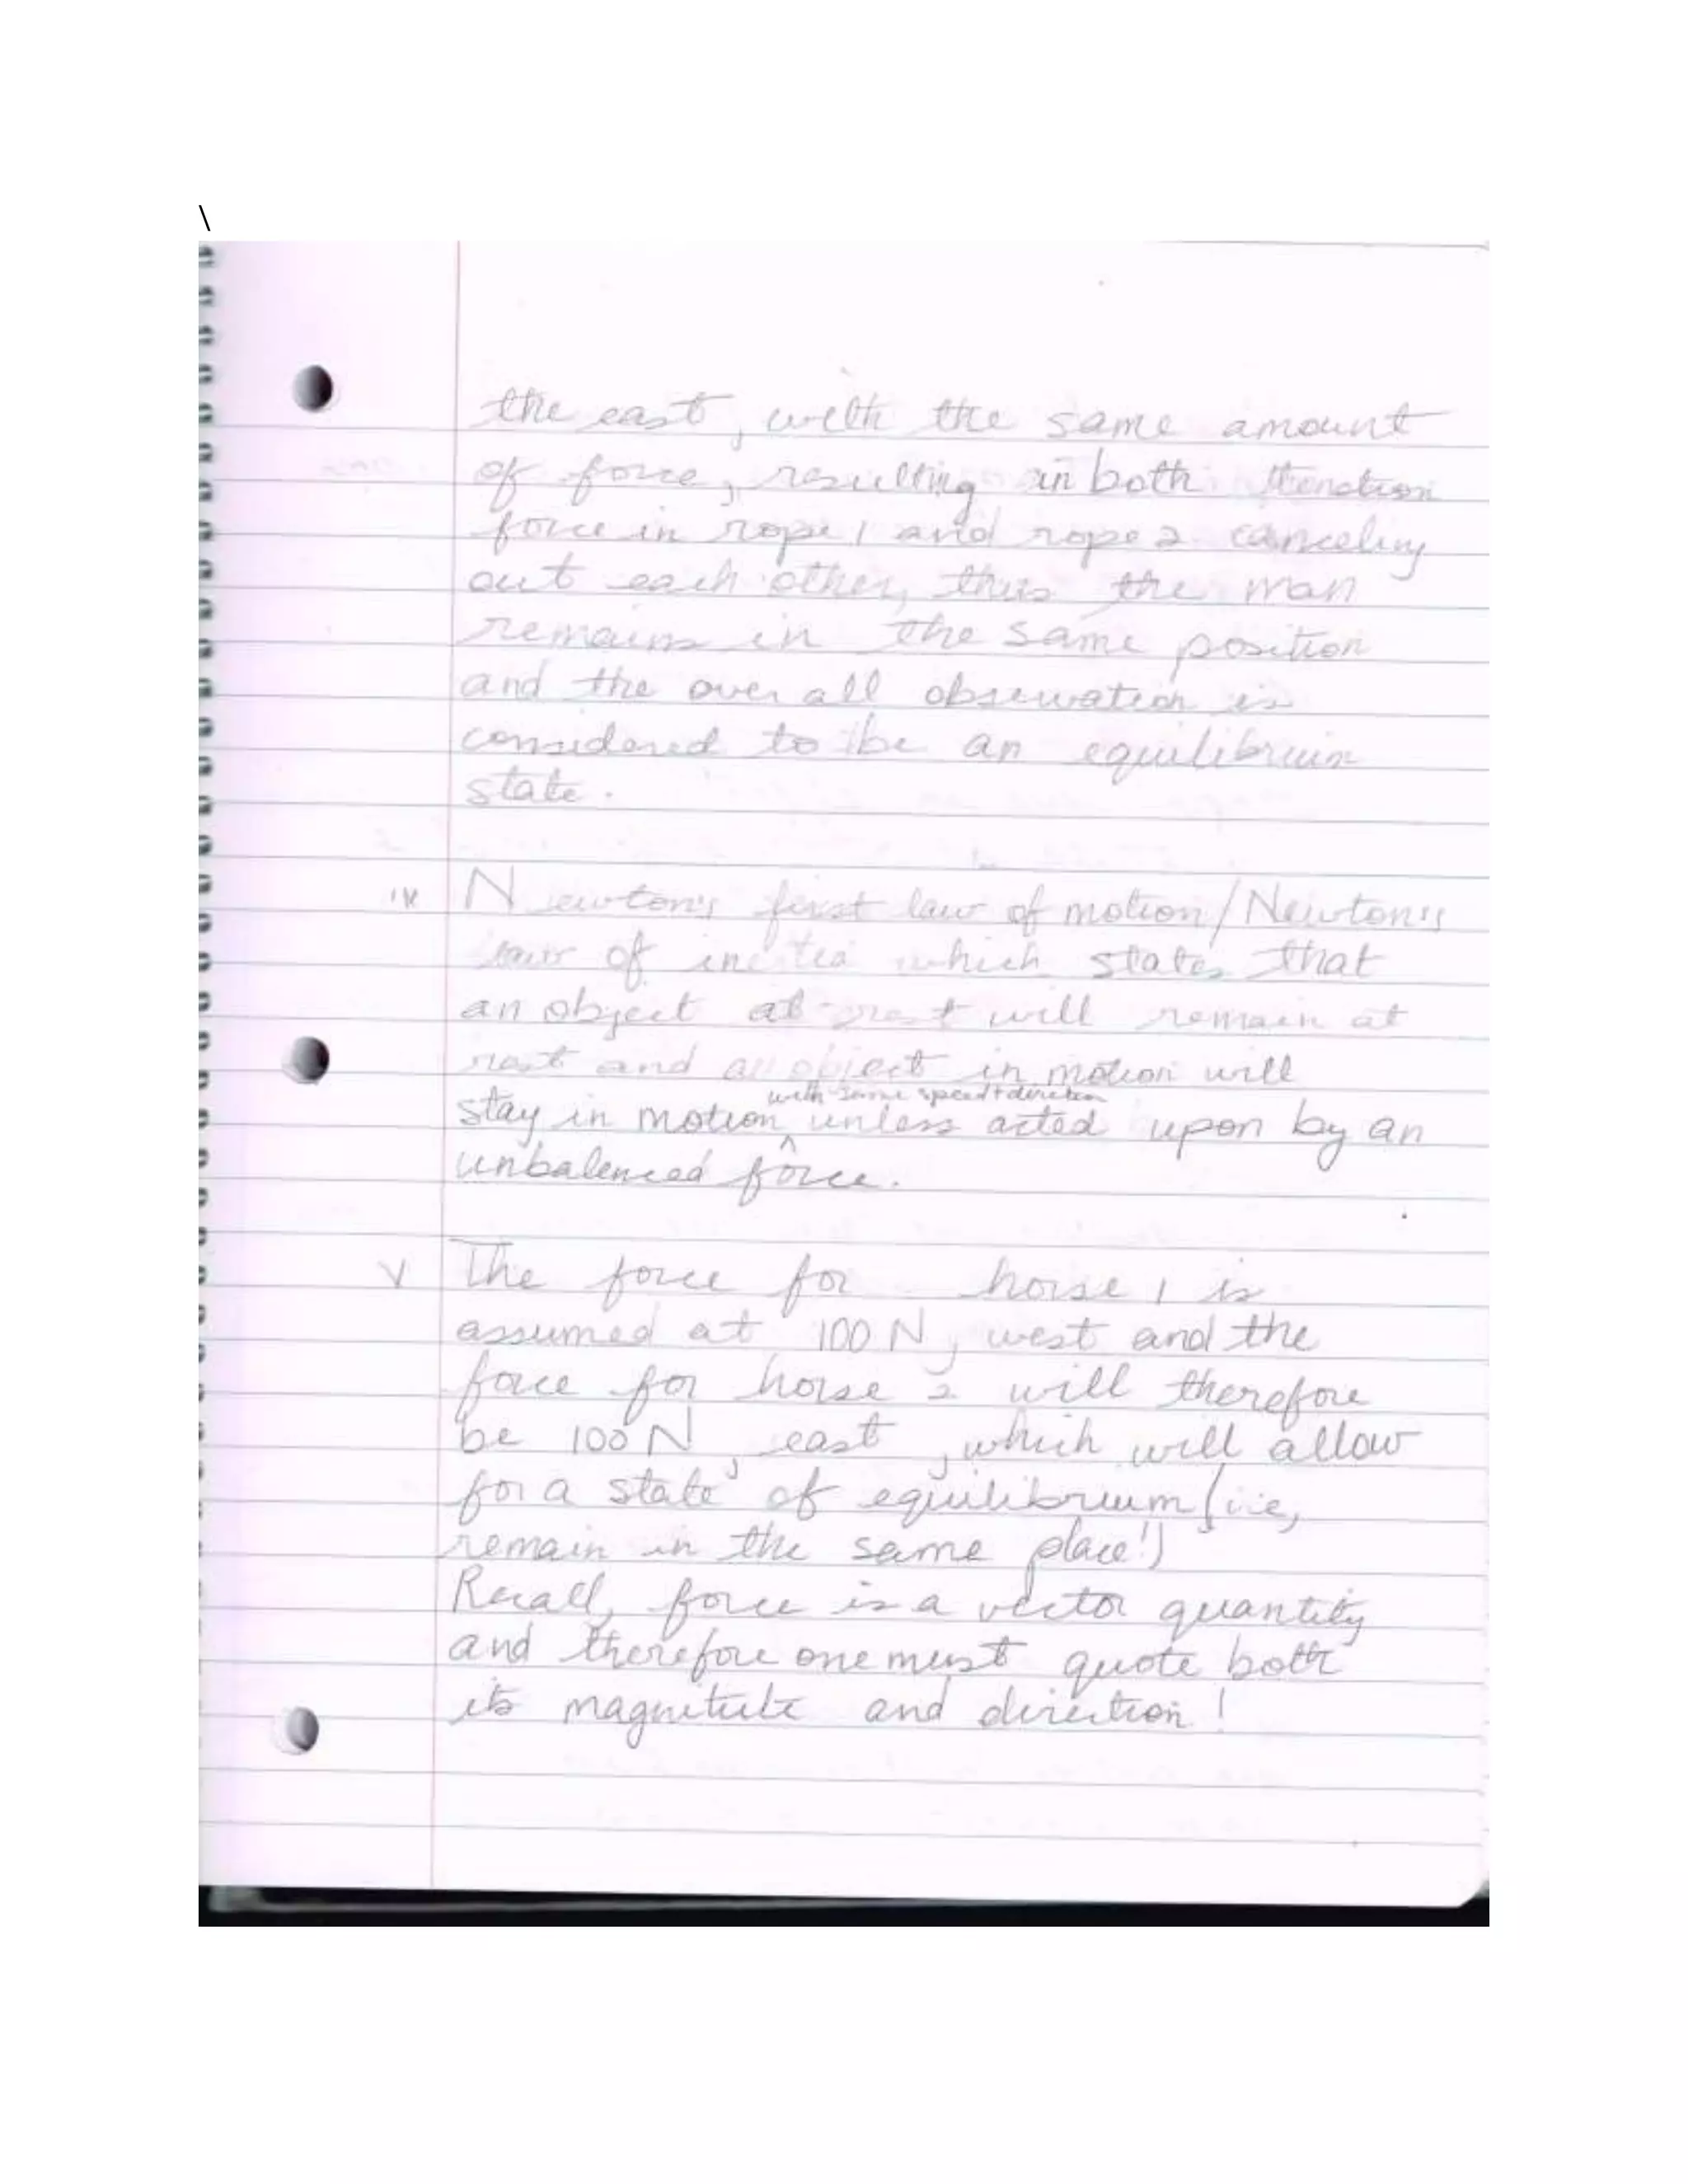 \
the east, with the same amount
of force, resulting in both the
force in rope 1 and rope 2 canceling
out each other, thus the man
remains in the same position
and the over all observation is
considered to be an equilibrium
state.
iv Newton's first law of motion/Newton's
law of inertia which states that
an object at rest will remain at
rest and an object in motion will
with same speed + direction
stay in motion ^ unless acted upon by an
unbalenced force.
V The force for horse 1 is
assumed at 100 N, west and the
force for horse 2 will therefore
be 100 N, east, which will allow
for a state of equilibrium (i.e,
remain in the same place!)
Recall, force is a vector quantity
and therefore one must quote both
its magnitude and direction!